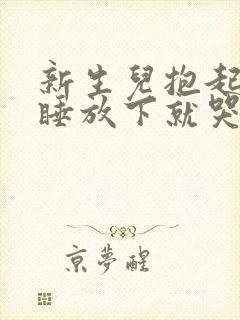 新生兒抱起
睡放下就哭
京夢醒